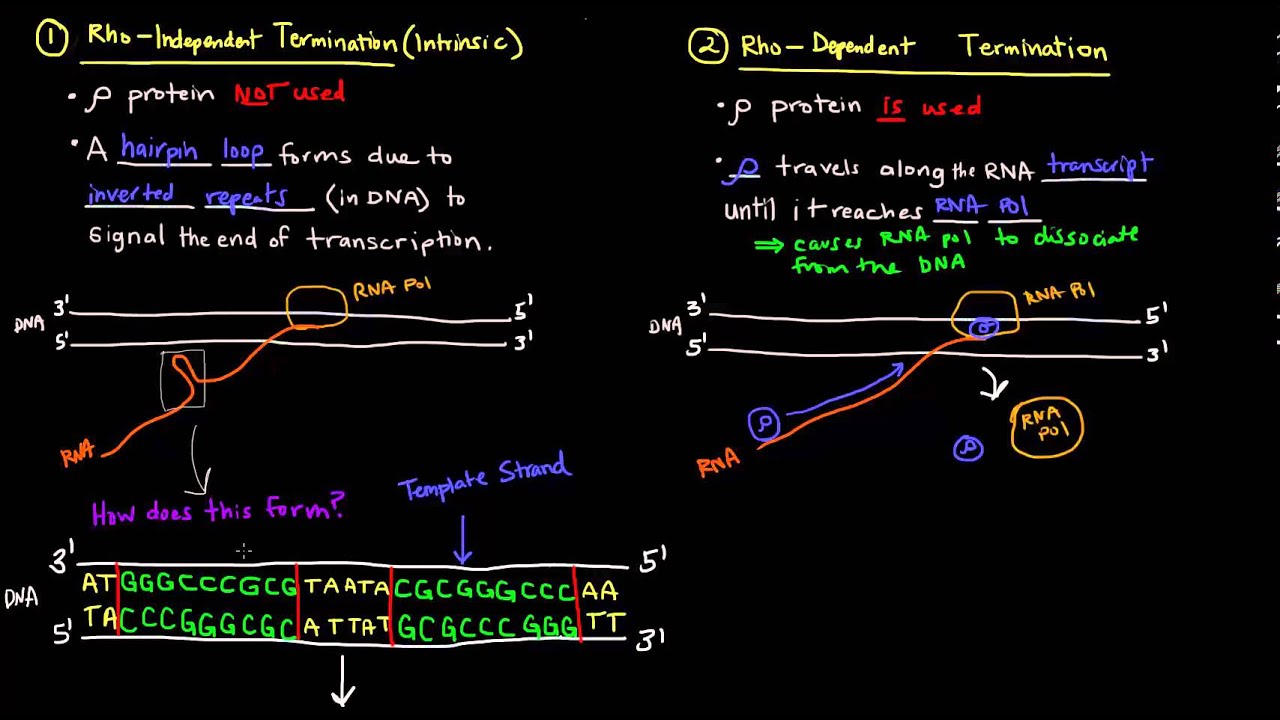 ① Rho-Independent Termination (Intrinsic)
• ρ protein NOT used
• A hairpin loop forms due to
inverted repeats (in DNA) to
signal the end of transcription.
RNA Pol
DNA 3' 5'
5' 3'
RNA
How does this form?
Template Strand
3' 5'
DNA
ATGGGCCCGCGTAATACGCGGGCCCAA
TACCCGGGCGCATTATGCGCCCGGGTT
5' 3'
② Rho-Dependent Termination
• ρ protein is used
• ρ travels along the RNA transcript
until it reaches RNA pol
⇒ causes RNA pol to dissociate
from the DNA
RNA Pol
DNA 3' 5'
ρ
5' 3'
ρ
RNA
ρ
RNA
pol